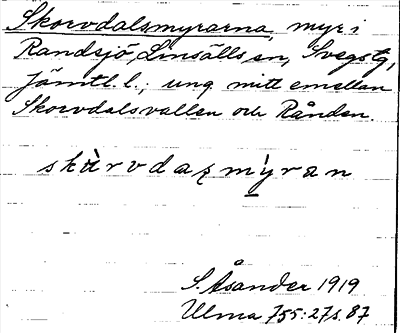 Skorvdalsmyrarna, myr i
Randsjö, Linsälls sn, Svegs tg,
Jämtl. l.; ung. mitt emellan
Skorvdalsvallen och Rånden.
skùrvdaʂmýran
S. Åsander 1919
Ulma 755:27 s. 87